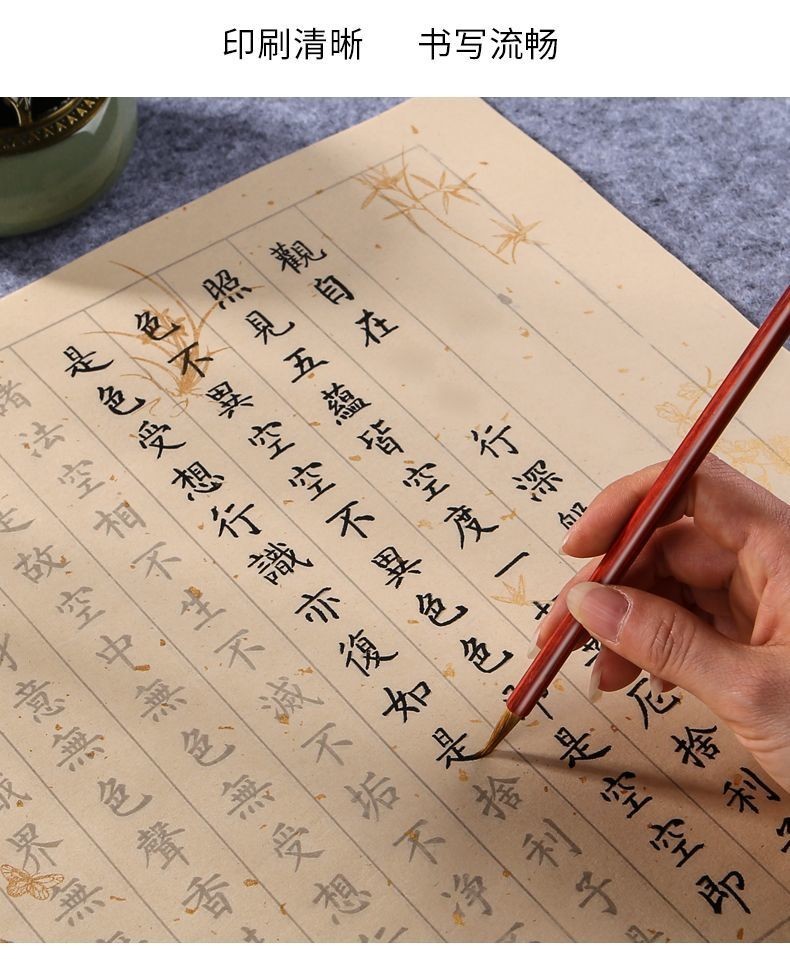 印刷清晰 书写流畅
觀自在行深般
照見五蘊皆空度一厄捨利
色不異空空不異色色是空空即
是色受想行識亦復如是捨利子是
諸法空相不生不滅不垢不淨
是故空中無色無受想
意無色聲香
界無